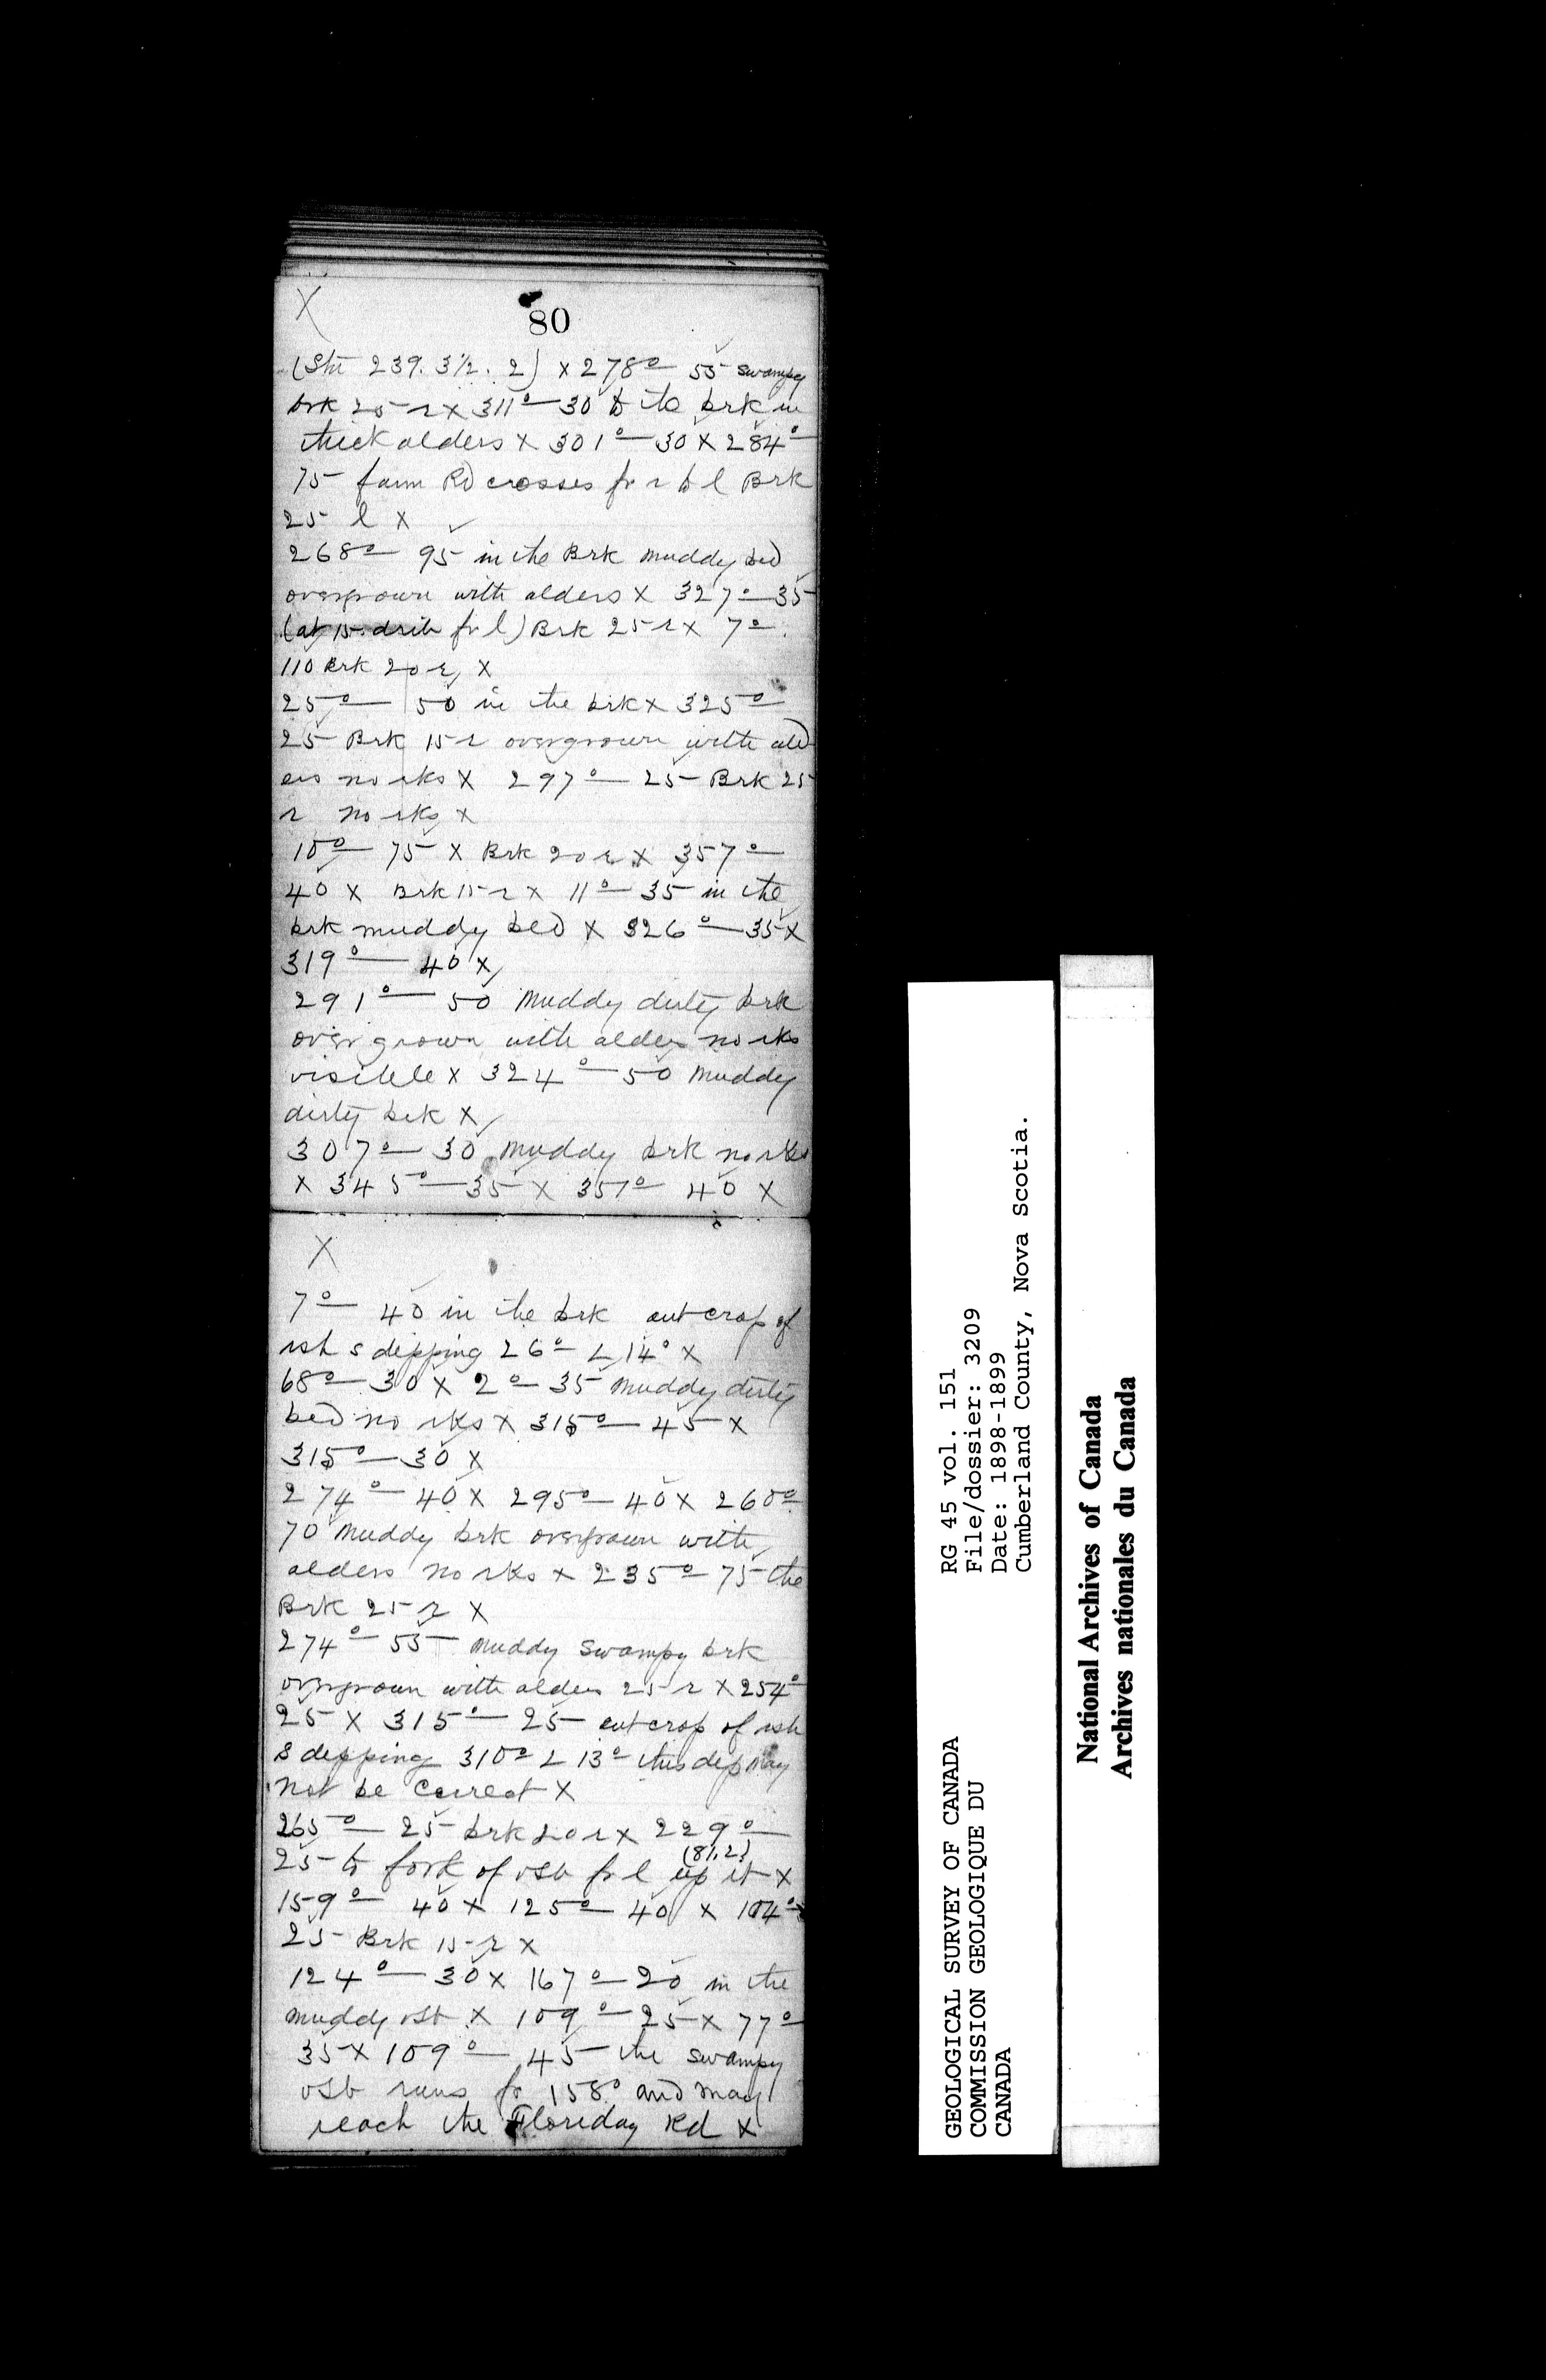 X
80
(Str 239. 3½. 2) x 278° 55 swampy
brk 25 r x 311° — 30 to the brk in
thick alders x 301° — 30 x 284° —
75 farm Rd crosses fr r to l Brk
25 l x
268° 95 in the Brk muddy bed
overgrown with alders x 327° — 35
(at 15 fr l) Brk 25 r x 7°
110 Brk 20 r x
25° — 50 in the brk x 325°
25 Brk 15 r overgrown with ald
ers no rks x 297° — 25 Brk 25
r no rks x
10° 75 x Brk 20 r x 357° —
40 x Brk 15 r x 11° — 35 in the
brk muddy bed x 326° — 35 x
319° — 40 x
291° — 50 Muddy dirty brk
over grown with alders no rks
visible x 324° — 50 Muddy
dirty brk x
307° — 30 muddy brk no rks
x 345° — 35 x 357° 40 x
X
7° — 40 in the brk outcrop of
rsh s dipping 26° ∠ 14° x
68° — 30 x 2° — 35 muddy dirty
bed no rks x 315° — 45 x
315° — 30 x
274° — 40 x 295° — 40 x 260°
70 muddy brk overgrown with
alders no rks x 235° 75 the
Brk 25 r x
274° — 55 Muddy Swampy brk
overgrown with alders 25 r x 254°
25 x 315° — 25 outcrop of rsh
s dipping 310° ∠ 13° this dip may
not be correct x
265° — 25 brk 20 r x 229° —
(81.2)
25 to fork of vsb fr l up it x
159° — 40 x 125° — 40 x 104° —
25 Brk 15 r x
124° — 30 x 167° — 20 in the
muddy vsb x 109° — 25 x 77°
35 x 109° — 45 the swampy
vsb runs fr 158° and may
reach the Floriday Rd x
GEOLOGICAL SURVEY OF CANADA
COMMISSION GEOLOGIQUE DU
CANADA
RG 45 vol. 151
File/dossier: 3209
Date: 1898-1899
Cumberland County, Nova Scotia.
National Archives of Canada
Archives nationales du Canada